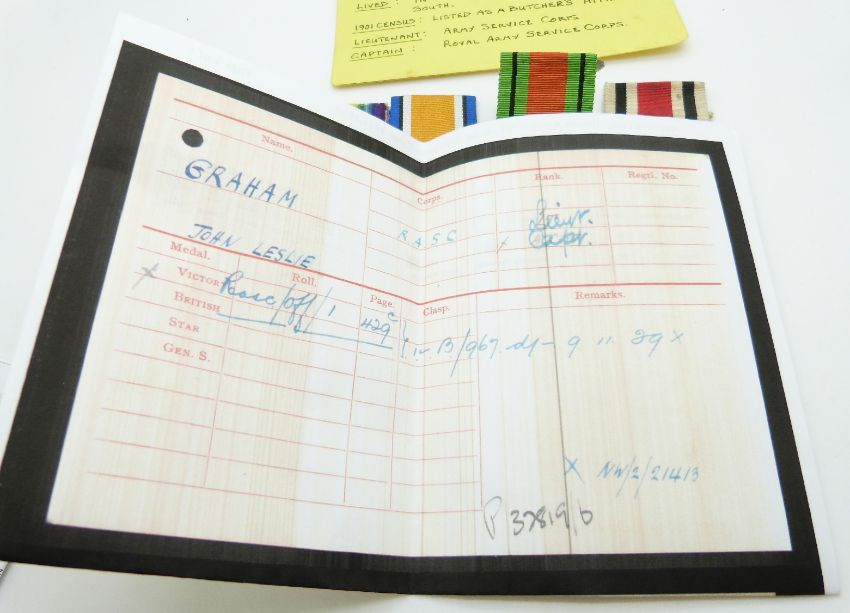 LIVED : IN
SOUTH.
1901 CENSUS : LISTED AS A BUTCHER'S
LIEUTENANT : ARMY SERVICE CORPS
CAPTAIN : ROYAL ARMY SERVICE CORPS.
Name. Corps. Rank. Regtl. No.
GRAHAM
R A S C Lieut.
x Capt.
JOHN LESLIE
Medal. Roll. Page. Clasp. Remarks.
x VICTOR Rasc/off/1 429 c
BRITISH
iv B/967. d/- 9 11 29 x
STAR
GEN. S.
X NW/2/21413
P 37819,6